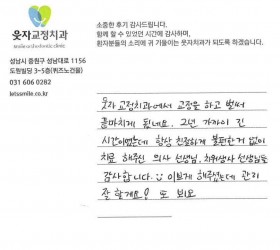 웃자교정치과
smile up orthodontic clinic
성남시 중원구 성남대로 1156
도원빌딩 3~5층(퀴즈노건물)
031 606 0282
letssmile.co.kr
소중한 후기 감사드립니다.
함께 할 수 있었던 시간에 감사하며,
환자분들의 소리에 귀 기울이는 웃자치과가 되도록 하겠습니다.
웃자 교정치과에서 교정을 하고 벌써
졸업하게 됐네요. 2년 가까이 긴
시간이였는데 항상 친절하게 불편한거 없이
치료 해주신 의사 선생님, 치위생사 선생님들
감사합니다. 이쁘게 해주셨는데 관리
잘 할게요! 또 봬요